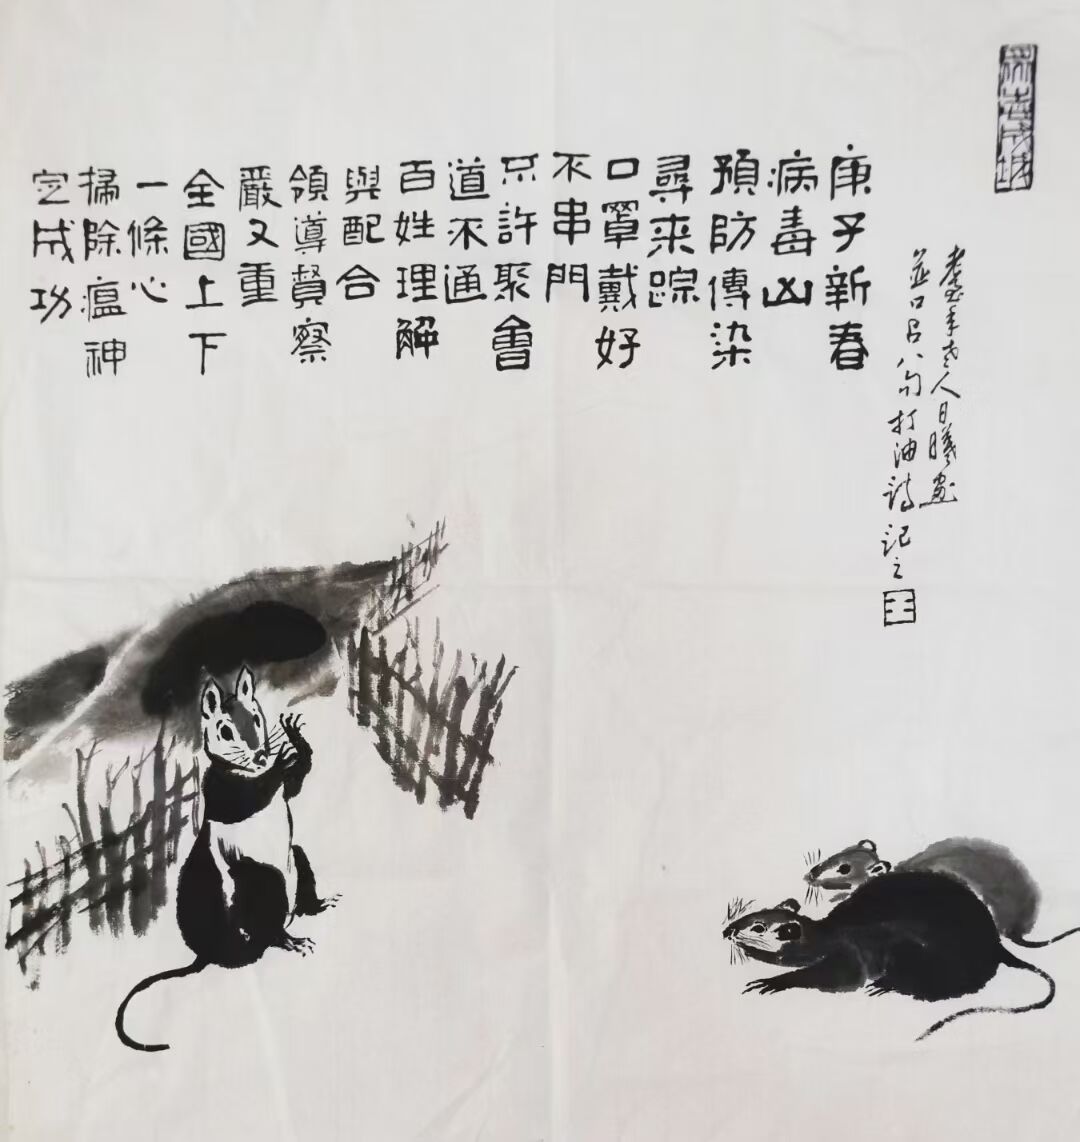 眾志成城
耋年老人日曦画
並口占八句打油诗记之
王
庚子新春
病毒凶
預防傳染
尋来踪
口罩戴好
不串門
許聚會
道不通
百姓理解
與配合
領導督察
嚴又重
全國上下
一條心
掃除瘟神
定成功